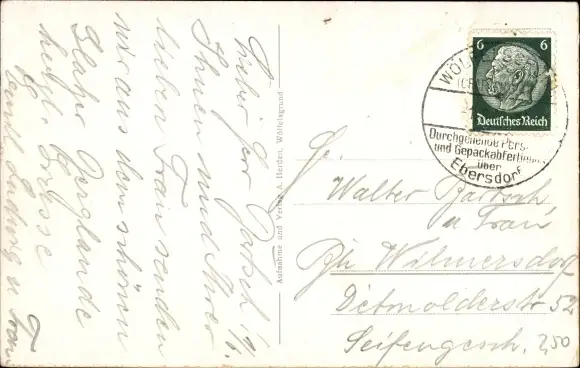 Lieber Herr Bartsch!
Ihnen und Ihrer
lieben Frau senden
wir aus dem schönen
Glatzer Berglande
herzl. Grüsse
Ludwig u Frau
Aufnahme und Verlag A. Herden, Wölfelsgrund
6 6
Deutsches Reich
WÖLFELSG
Durchgehende Pers
und Gepäckabfertigung
über
Ebersdorf
Walter Bartsch
u Frau
Bln Wilmersdorf
Detmolderstr 52
Seifengesch.
2,50